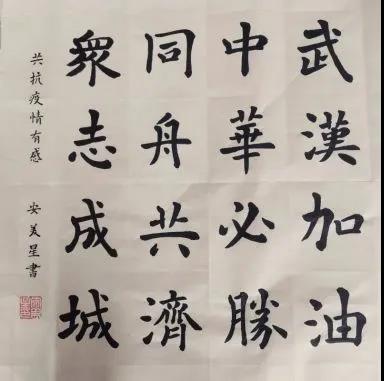 武漢加油
中華必勝
同舟共濟
衆志成城
共抗疫情有感
安美星書